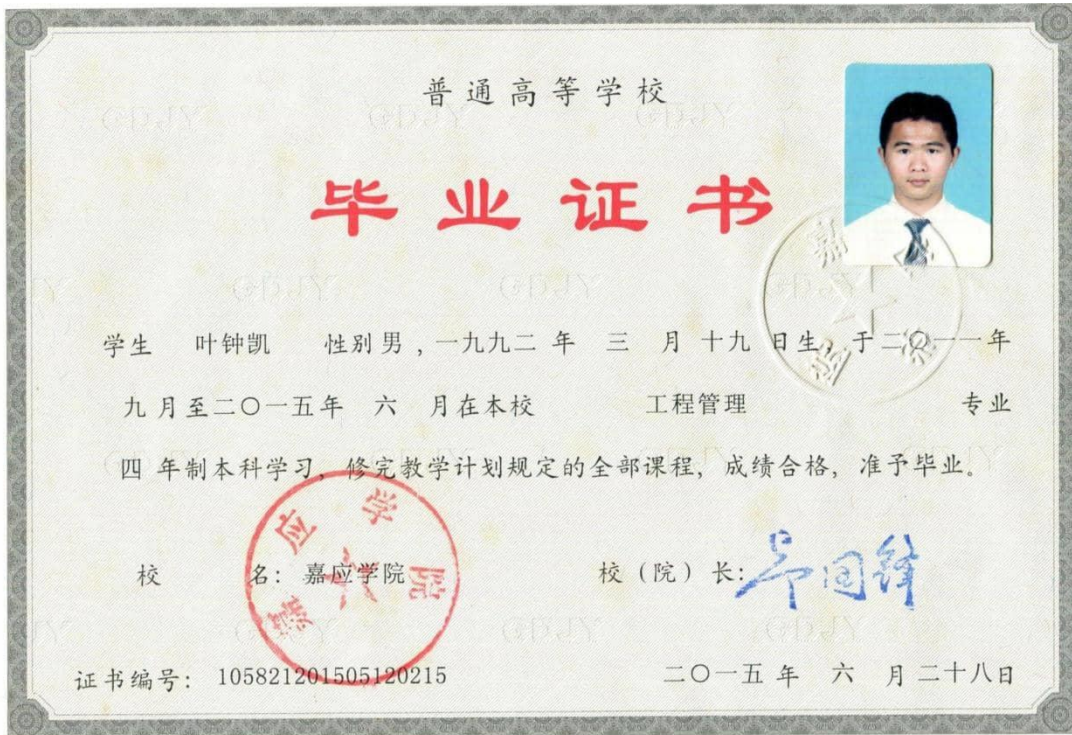 普通高等学校
毕业证书
学生 叶钟凯 性别 男 , 一九九二 年 三 月 十九 日生, 于二〇一一年
九 月至二〇一五年 六 月在本校 工程管理 专业
四 年制本科学习, 修完教学计划规定的全部课程, 成绩合格, 准予毕业。
嘉应学院
校 名: 嘉应学院 校（院）长:
证书编号: 105821201505120215 二〇一五 年 六 月 二十八日